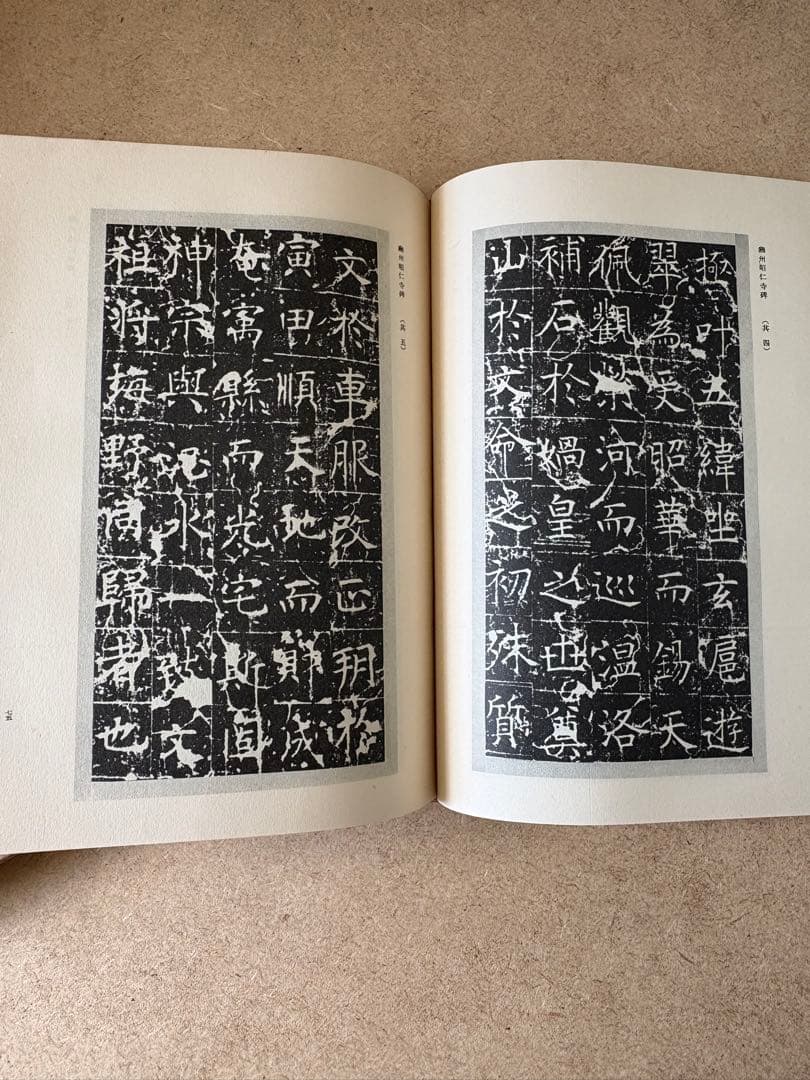 豳州昭仁寺碑 (其四)
極叶五緯坐玄扈遊
翠為受昭華而錫天
佩觀榮河而巡溫洛
補石於媧皇之世奠
山於文命之初殊質
豳州昭仁寺碑 (其五)
文於車服改正朔於
寅甲順天地而成
奄寓縣而光宅斯固
神宗與水一致文
祖將野同歸者也
七五